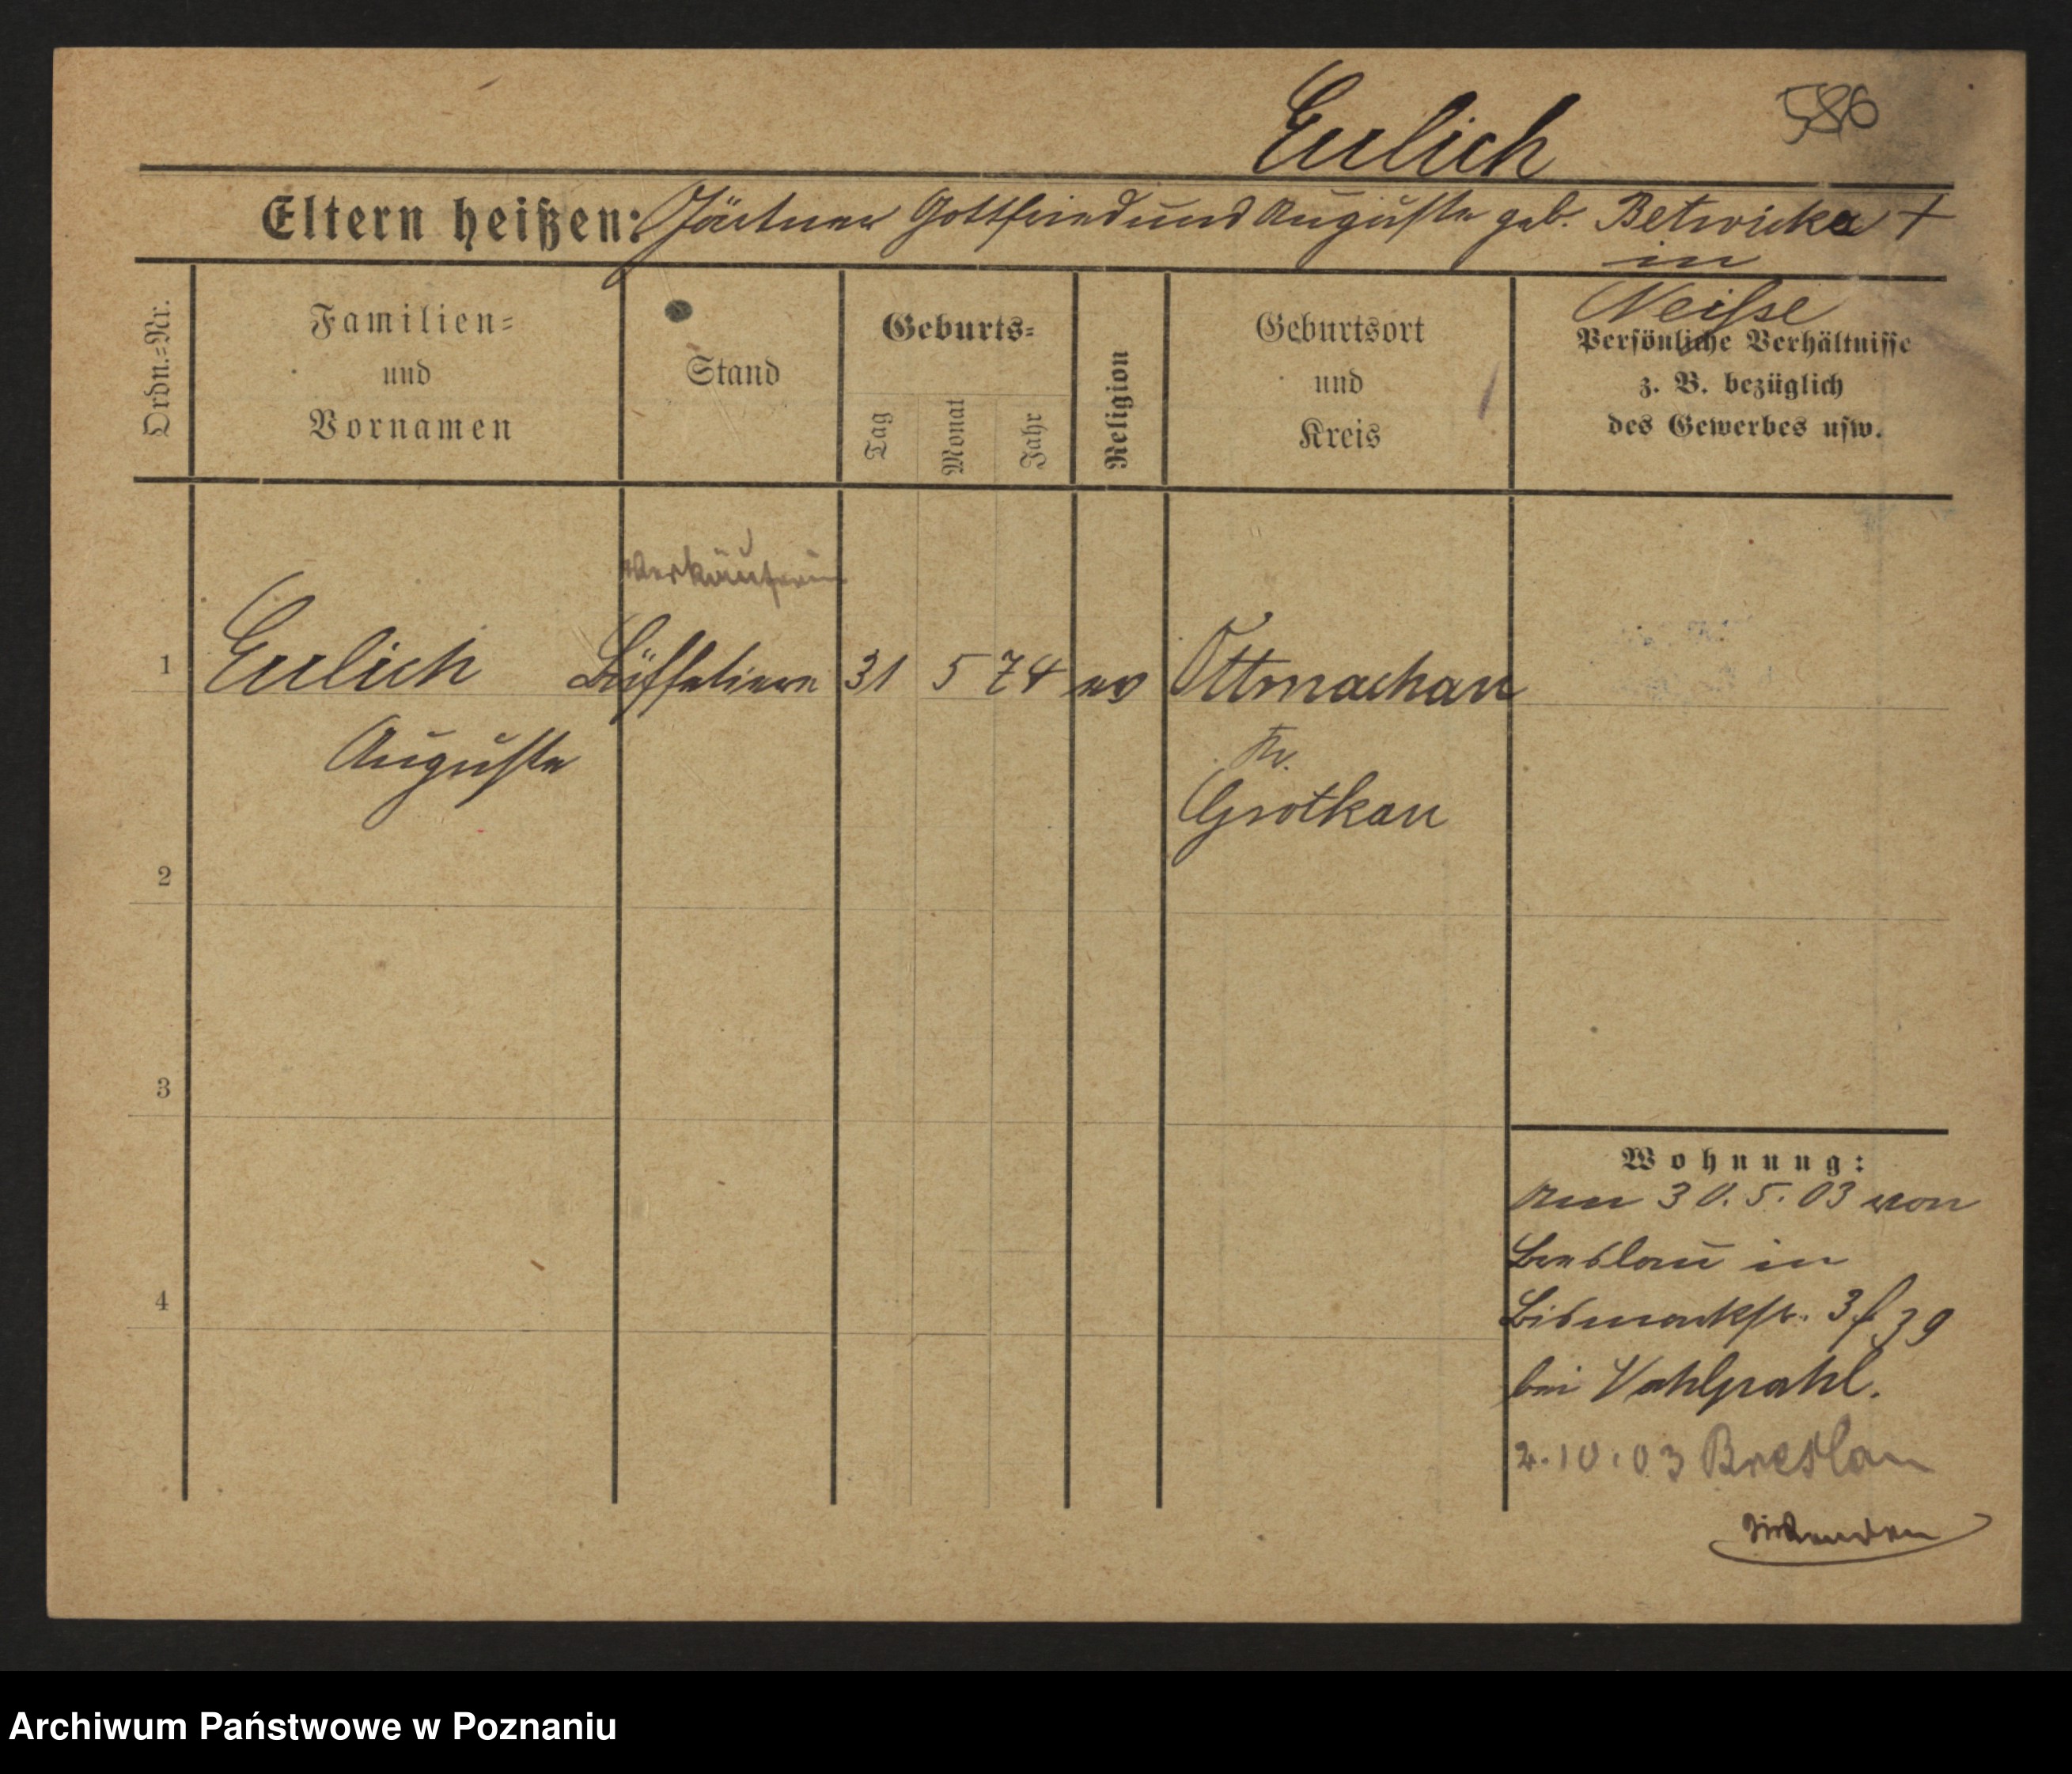 Eulich
586
Eltern heißen: Gärtner Gottfried und Auguste geb. Betwicka †
in
Neisse
Ordn.=Nr.
Familien=
und
Vornamen
Stand
Geburts=
Tag
Monat
Jahr
Religion
Geburtsort
und
Kreis
Persönliche Verhältnisse
z. B. bezüglich
des Gewerbes usw.
Verkäuferin
1 Eulich Büffetiere 31 5 74 ev Ottmachau
Auguste
Kr.
Grotkau
2
3
4
Wohnung:
Am 30. 5. 03 von
Breslau in
Bismarckstr. 3
bei Vahlpahl.
2. 10. 03 Breslau
Archiwum Państwowe w Poznaniu